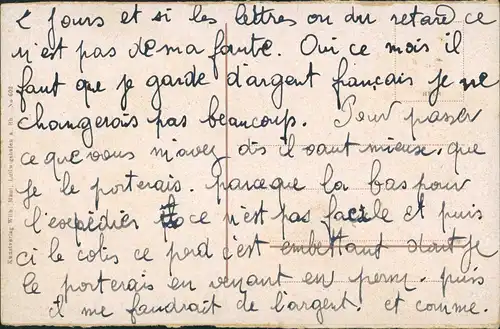 2 jours et si les lettres on du retard ce
n'est pas de ma faute. Oui ce mois il
faut que je garde d'argent français je ne
changerais pas beaucoup. Pour passer
ce que vous m'avez dis il vaut mieuse. que
je le porterais. parceque la bas pour
l'expédier ce n'est pas facile et puis
ci le colis ce perd c'est embettant dont je
le porterais en venant en perm. puis
il me faudrait de l'argent. et comme.
Kunstverlag Wilh. Ludwigshafen a. Rh. No 400